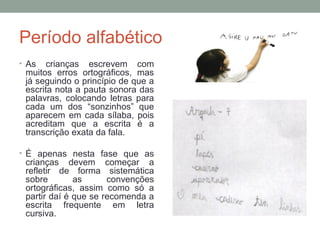 Período alfabético
• As crianças escrevem com
muitos erros ortográficos, mas
já seguindo o princípio de que a
escrita nota a pauta sonora das
palavras, colocando letras para
cada um dos “sonzinhos” que
aparecem em cada sílaba, pois
acreditam que a escrita é a
transcrição exata da fala.
• É apenas nesta fase que as
crianças devem começar a
refletir de forma sistemática
sobre as convenções
ortográficas, assim como só a
partir daí é que se recomenda a
escrita frequente em letra
cursiva.
- 7
lapis
caderno
apontador
meu caderno tem linhas